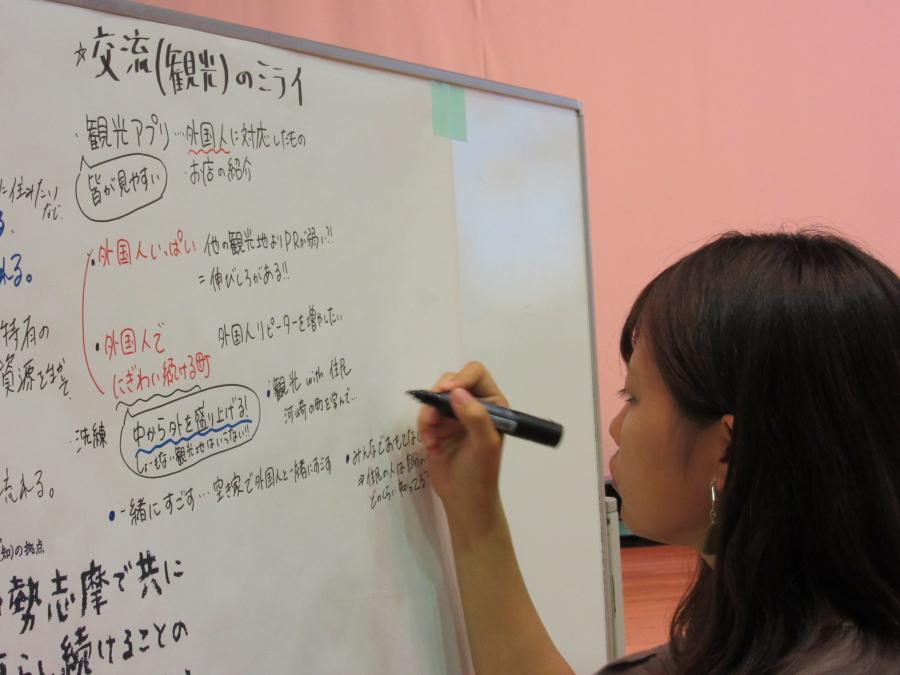 ☆交流(観光)のミライ
・観光アプリ…外国人に対応したもの
皆が見やすい
・お店の紹介
に住みたい
など、
る、
れる。
・外国人いっぱい 他の観光地よりPRが弱い!!
=伸びしろがある!!
特有の
資源を生かして
・外国人で
にぎわい続ける町
外国人リピーターを増やしたい
・洗練
中から外を盛り上げる!
観光地はいらない!!
・観光 with 住民
の町を学んで…
流れる。
・一緒にすごす…空き家で外国人と一緒にすごす
・みんなでおもてなし
⇒住民の人は自分
どのくらい知ってる?
の拠点
勢志摩で共に
し続けることの